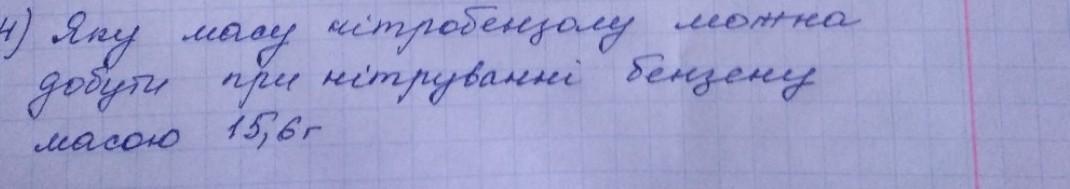 4) Яку масу нітробензолу можна
добути при нітруванні бензену
масою 15,6г